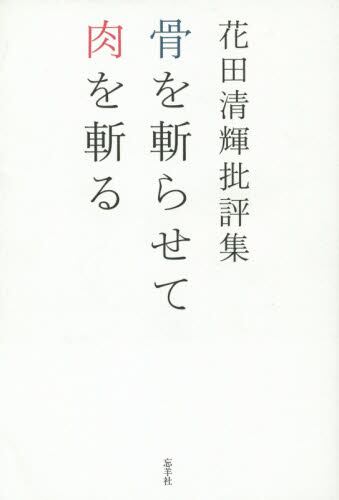 花田清輝批評集
骨を斬らせて
肉を斬る
忘羊社